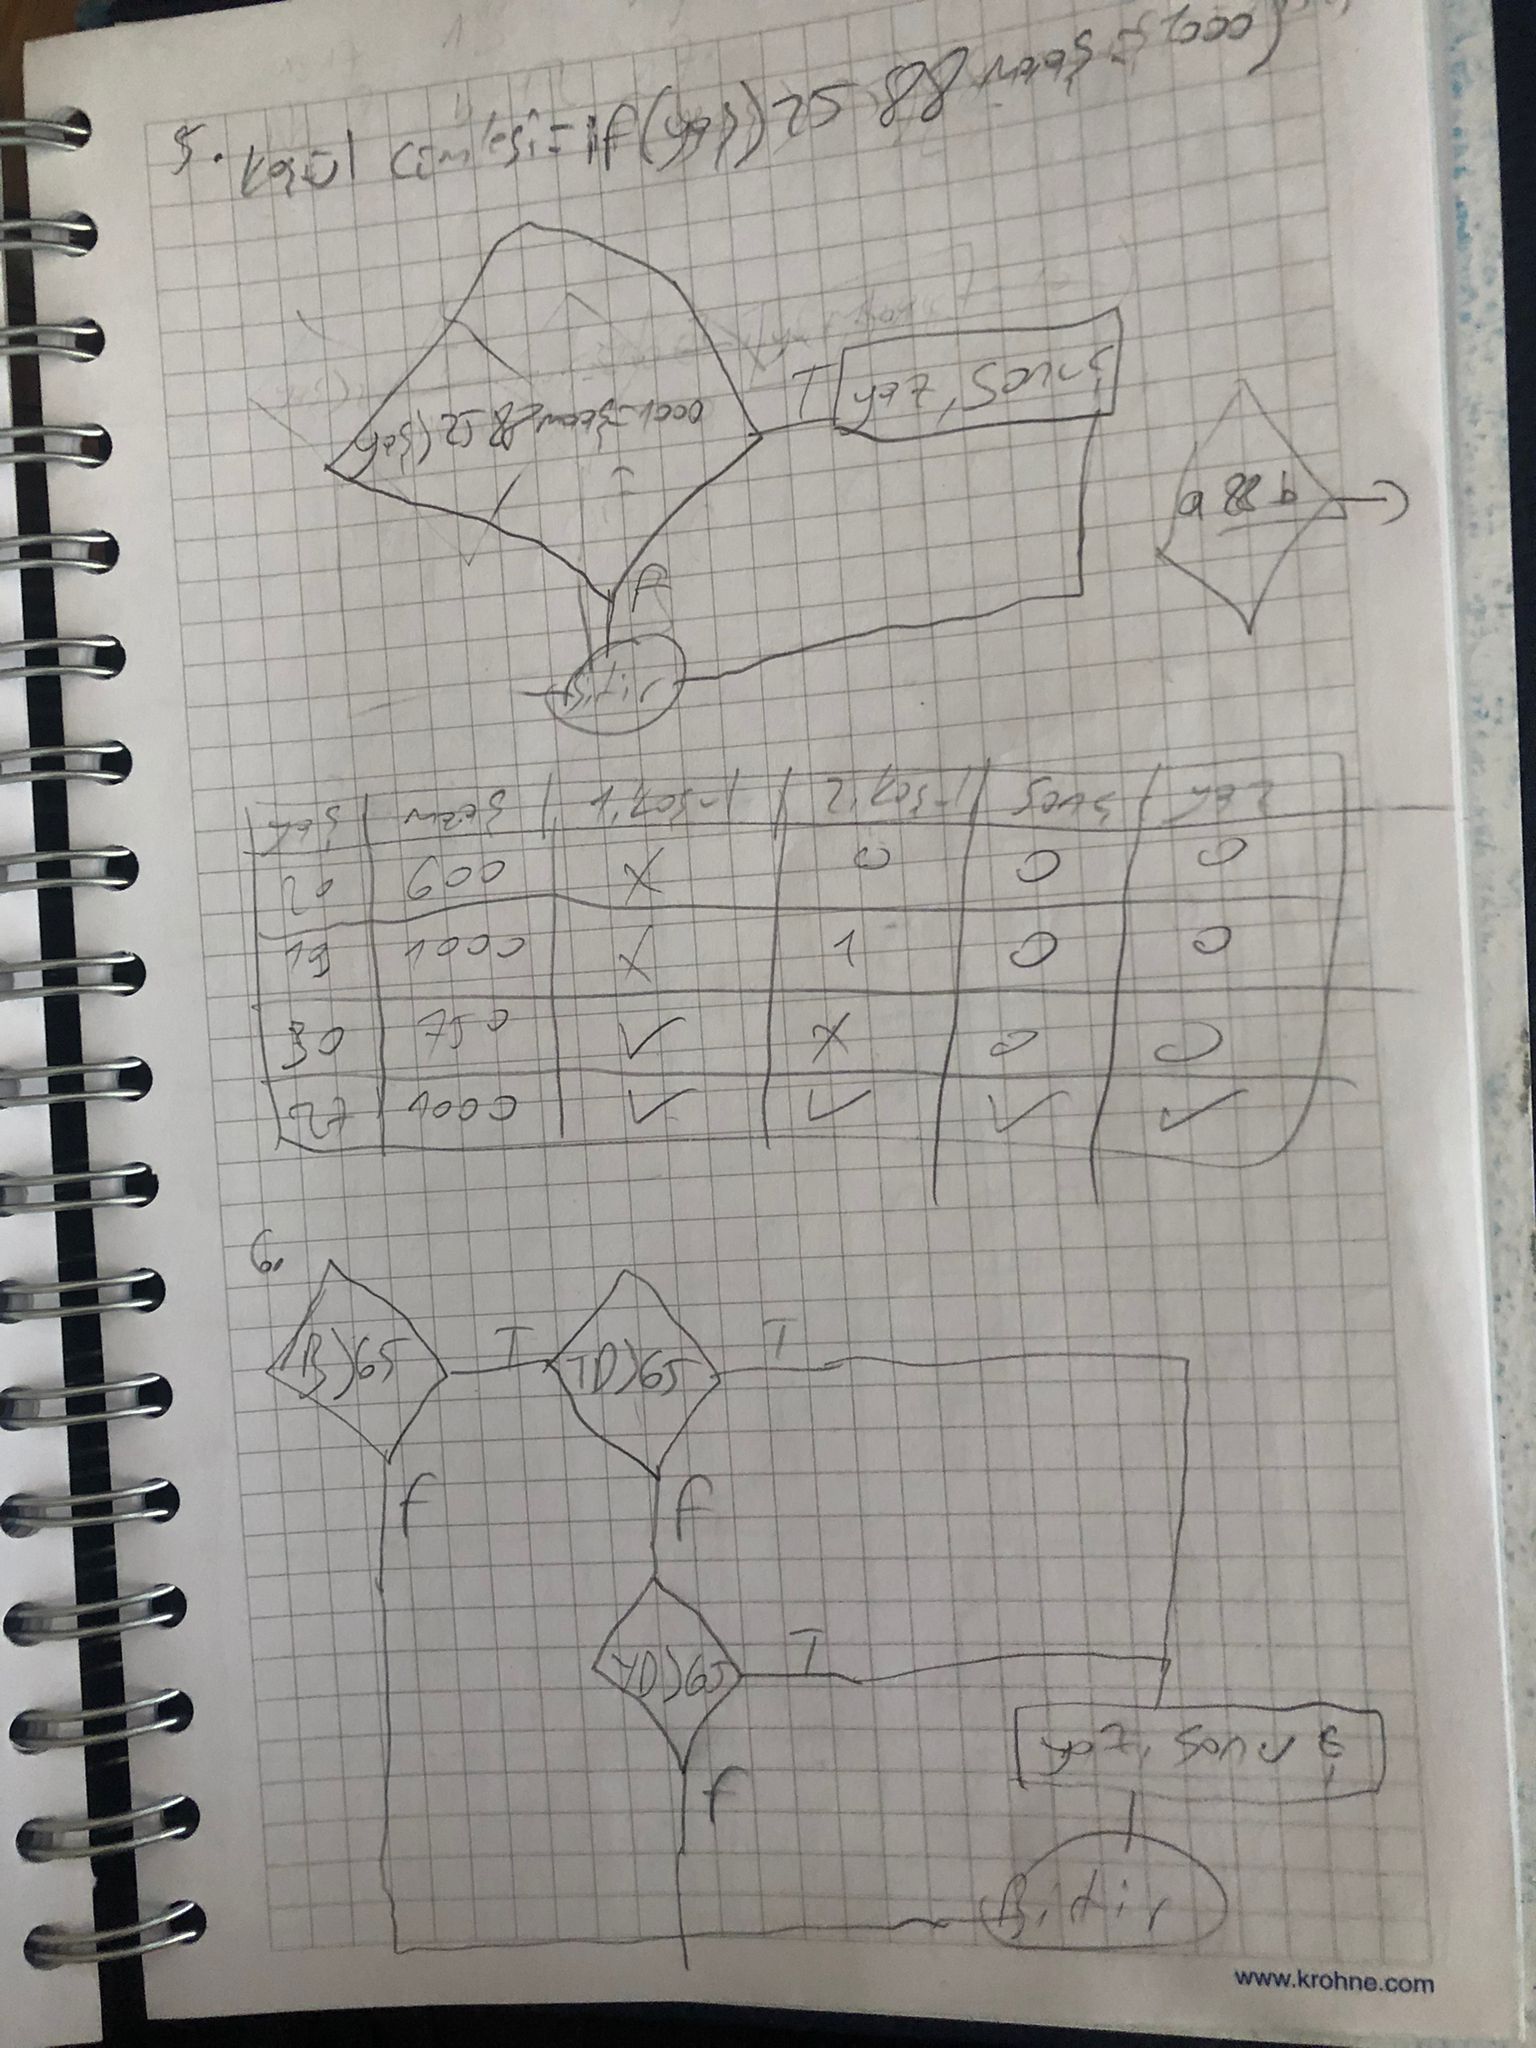 5. koşul cümlesi= if (yaş>25 && maaş≤1000)
yaş>25 && maaş≤1000
T
yaz, Sonuç
a && b
f
Bitir
yaş | maaş | koşul,1 | koşul,2 | Sonuç | yaz
20 | 600 | X | 0 | 0 | 0
19 | 1000 | X | 1 | 0 | 0
30 | 750 | ✓ | X | 0 | 0
27 | 1000 | ✓ | ✓ | ✓ | ✓
6.
B>65
T
TD>65
T
f
f
YD>65
T
f
Bitir
www.krohne.com